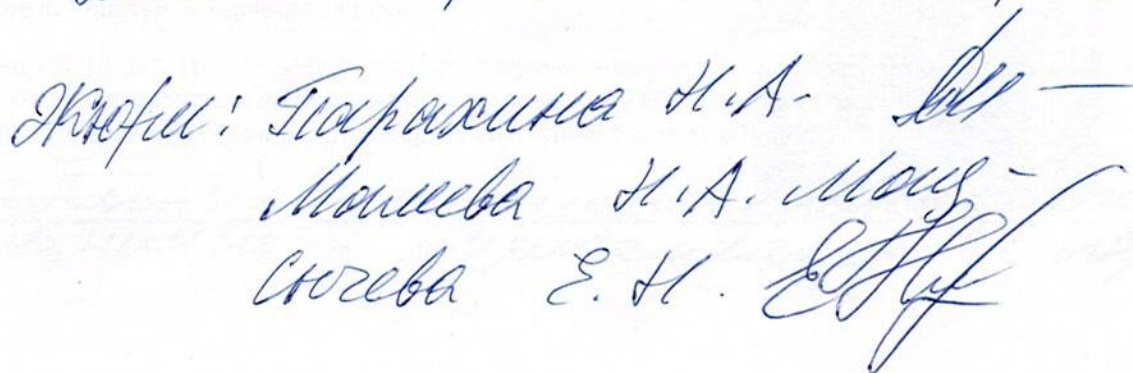 Жюри: Парахина Н.А.
Моисеева Н.А.
Сючева Е.Н.